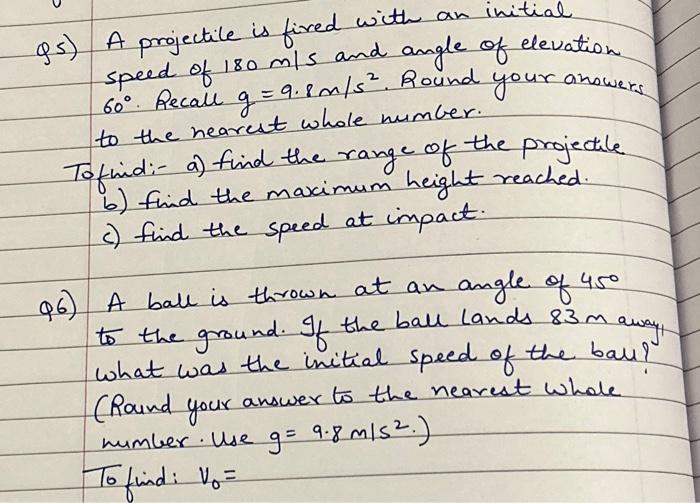 Q5) A projectile is fired with an initial
speed of 180 m/s and angle of elevation
60°. Recall g = 9.8 m/s². Round your answers
to the nearest whole number.
To find:- a) find the range of the projectile
b) find the maximum height reached.
c) find the speed at impact.
Q6) A ball is thrown at an angle of 45°
to the ground. If the ball lands 83 m away,
what was the initial speed of the ball?
(Round your answer to the nearest whole
number. Use g = 9.8 m/s².)
To find: V₀ =